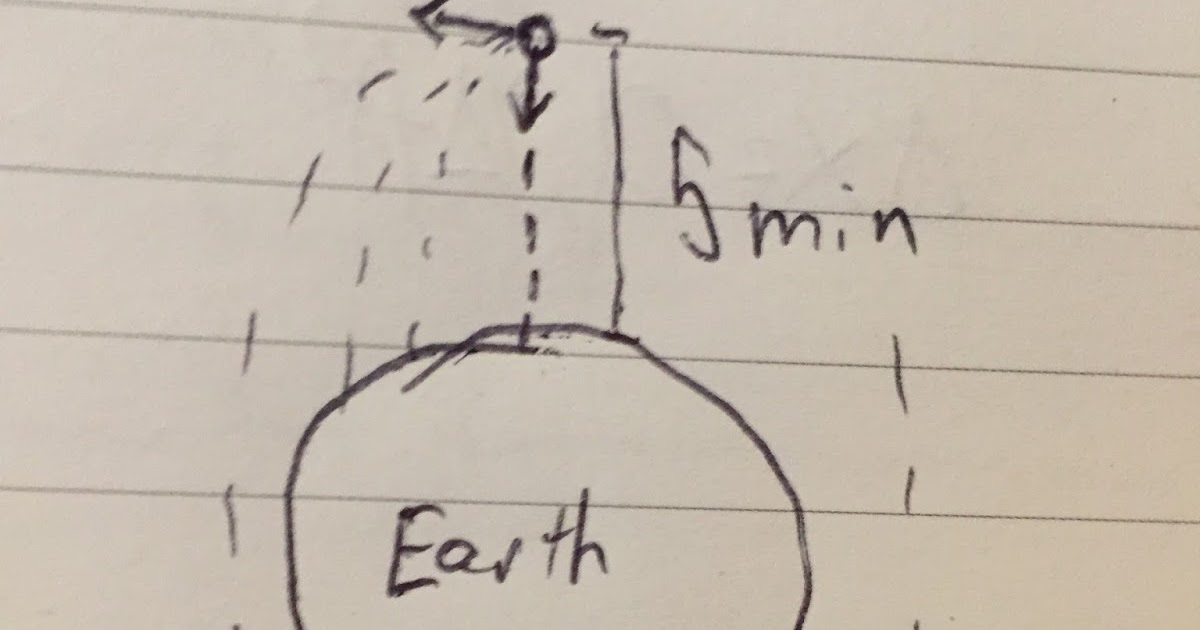 5 min
Earth